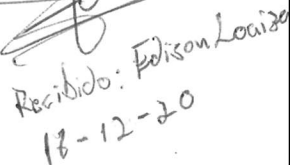 Recibido: Edison Loaiza
18-12-20